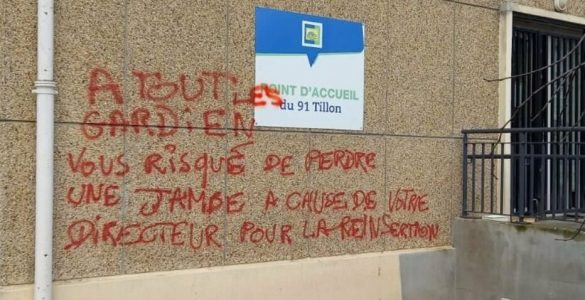 POINT D'ACCUEIL
du 91 Tillon
A TOUT LES
GARDIEN
VOUS RISQUE DE PERDRE
UNE JAMBE A CAUSE DE VOTRE
DIRECTEUR POUR LA REINSERTION